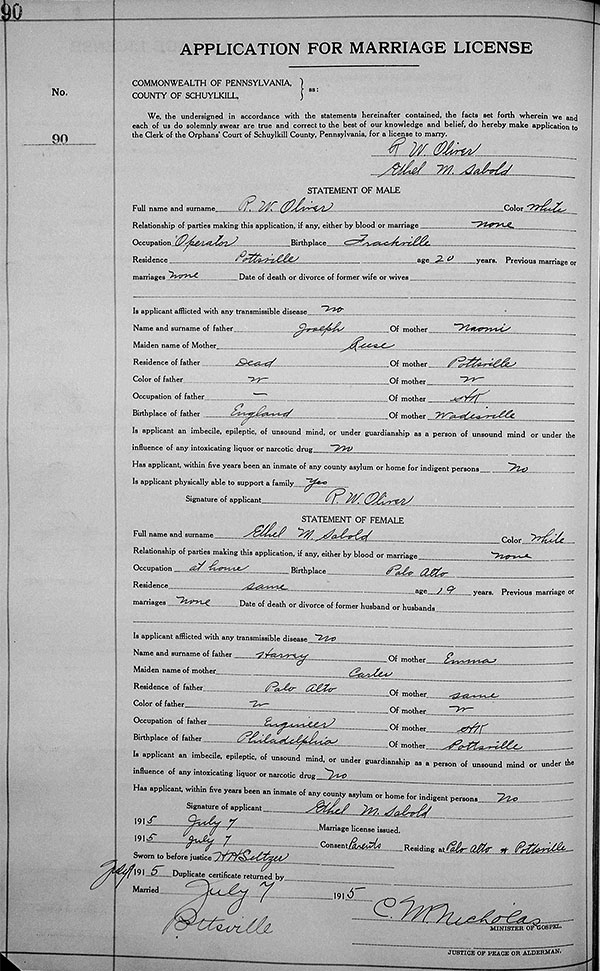 90
APPLICATION FOR MARRIAGE LICENSE
No.
90
COMMONWEALTH OF PENNSYLVANIA,
COUNTY OF SCHUYLKILL, } ss:
We, the undersigned in accordance with the statements hereinafter contained, the facts set forth wherein we and
each of us do solemnly swear are true and correct to the best of our knowledge and belief, do hereby make application to
the Clerk of the Orphans' Court of Schuylkill County, Pennsylvania, for a license to marry.
R. W. Oliver
Ethel M. Sabold
STATEMENT OF MALE
Full name and surname R. W. Oliver Color White
Relationship of parties making this application, if any, either by blood or marriage none
Occupation Operator Birthplace Frackville
Residence Pottsville age 20 years. Previous marriage or
marriages none Date of death or divorce of former wife or wives
Is applicant afflicted with any transmissible disease no
Name and surname of father Joseph Of mother Naomi
Maiden name of Mother Reese
Residence of father Dead Of mother Pottsville
Color of father W Of mother W
Occupation of father — Of mother HK
Birthplace of father England Of mother Wadesville
Is applicant an imbecile, epileptic, of unsound mind, or under guardianship as a person of unsound mind or under the
influence of any intoxicating liquor or narcotic drug no
Has applicant, within five years been an inmate of any county asylum or home for indigent persons no
Is applicant physically able to support a family yes
Signature of applicant R. W. Oliver
STATEMENT OF FEMALE
Full name and surname Ethel M. Sabold Color White
Relationship of parties making this application, if any, either by blood or marriage none
Occupation at home Birthplace Palo Alto
Residence same age 19 years. Previous marriage or
marriages none Date of death or divorce of former husband or husbands
Is applicant afflicted with any transmissible disease no
Name and surname of father Harvey Of mother Emma
Maiden name of mother Carter
Residence of father Palo Alto Of mother same
Color of father W Of mother W
Occupation of father Engineer Of mother HK
Birthplace of father Philadelphia Of mother Pottsville
Is applicant an imbecile, epileptic, of unsound mind, or under guardianship as a person of unsound mind or under the
influence of any intoxicating liquor or narcotic drug no
Has applicant, within five years been an inmate of any county asylum or home for indigent persons No
Signature of applicant Ethel M. Sabold
1915 July 7 Marriage license issued.
1915 July 7 Consent Parents Residing at Palo Alto & Pottsville
Sworn to before justice H H Seltzer
July 1915 Duplicate certificate returned by
Married July 7 1915
Pottsville C. M. Nicholas
MINISTER OF GOSPEL.
JUSTICE OF PEACE OR ALDERMAN.